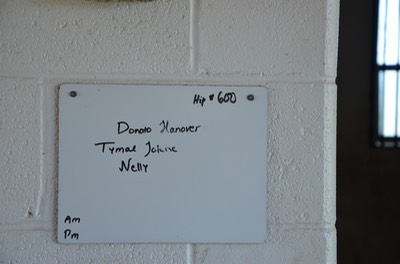 Hip # 600
Donato Hanover
Tymal
Nelly
Am
Pm